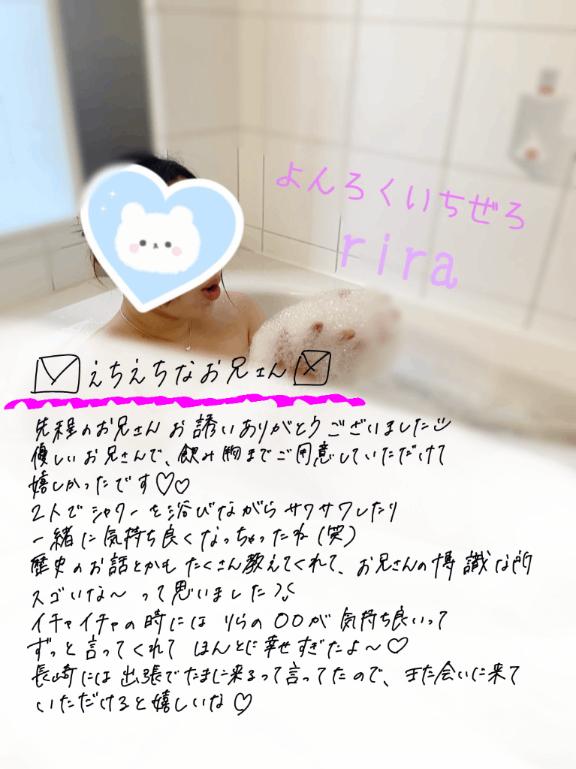 よんろくいちぜろ
rira
えちえちなお兄さん
先程のお兄さん お誘いありがとうございました
優しいお兄さんで、飲み物までご用意していただけて
嬉しかったです♡♡
2人でシャワーを浴びながらサワサワしたり
一緒に気持ち良くなっちゃったね(笑)
歴史のお話とかもたくさん教えてくれて、お兄さんの博識な所
スゴいな〜って思いました
イチャイチャの時には りらの〇〇が気持ち良いって
ずっと言ってくれて ほんとに幸せすぎたよ〜♡
長崎には出張でたまに来るって言ってたので、また会いに来て
いただけると嬉しいな♡